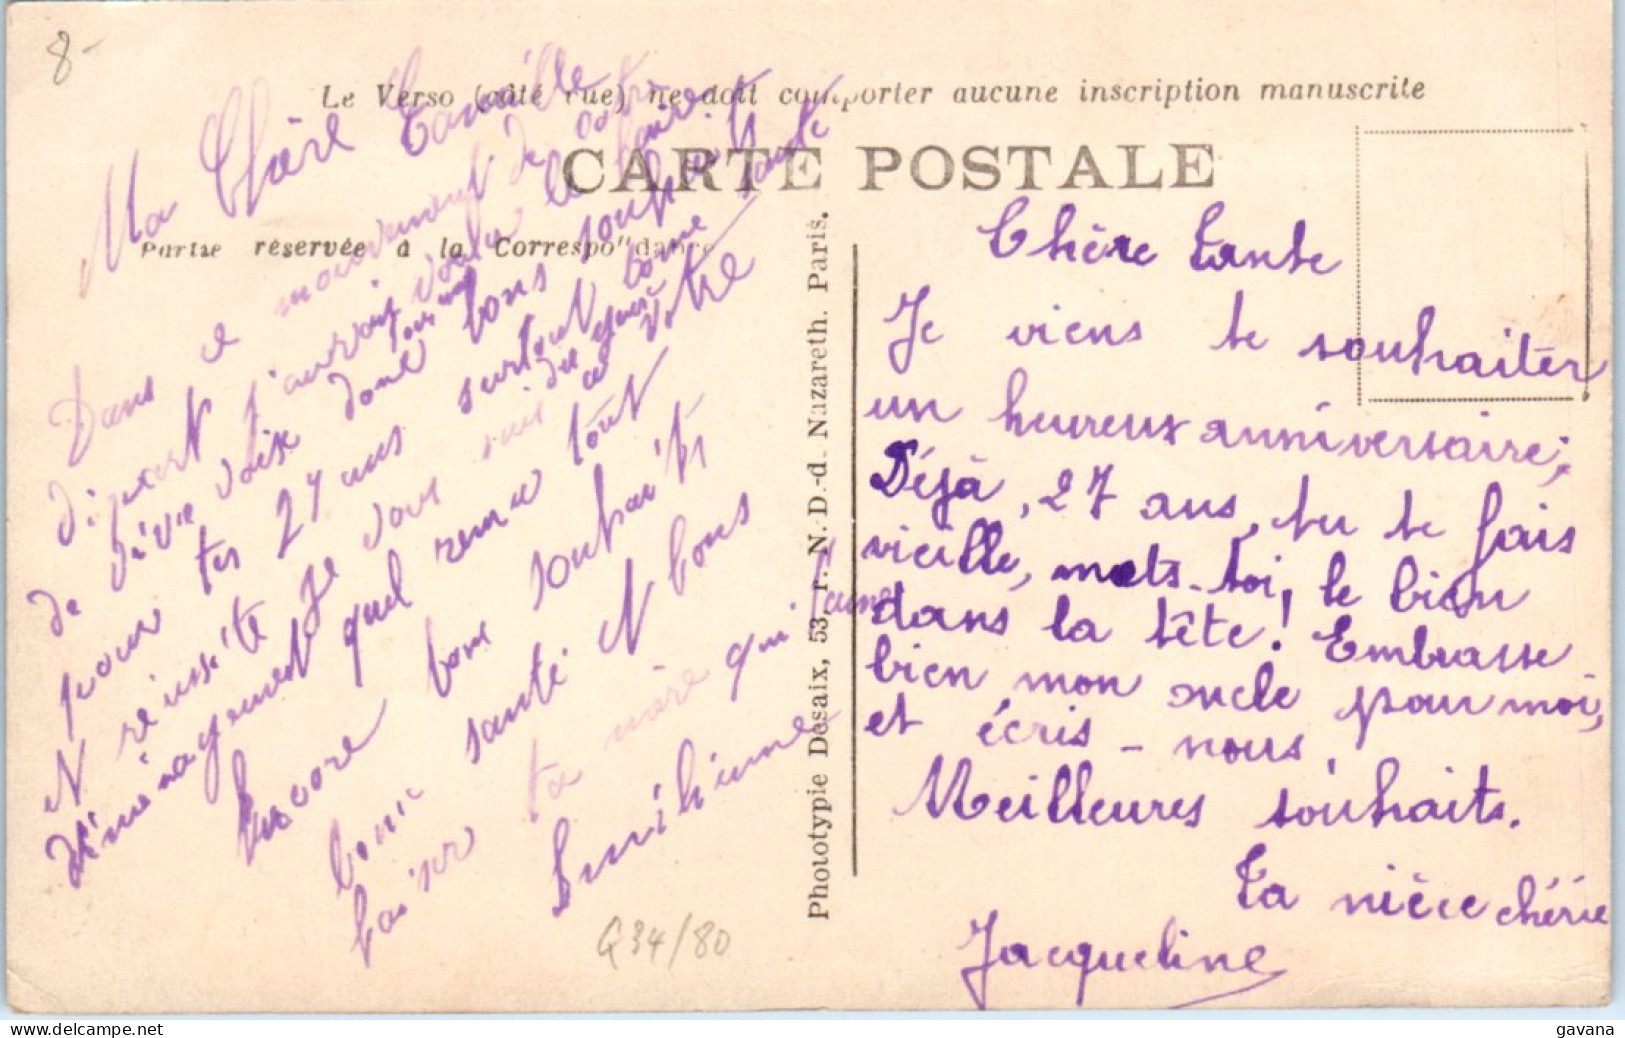 8-
Le Verso (côté rue) ne doit comporter aucune inscription manuscrite
CARTE POSTALE
Partie réservée à la Correspondance
Ma Chère Camille
Dans ce mouvement de votre
départ j'aurais voulu le faire
de vive voix donc bons souhaits
pour tes 27 ans surtout bonne santé
N réussite
déménagement quel remue tout
Encore bons souhaits
bonne santé N bons
baiser ta mère qui t'aime
Emilienne
G34/80
Phototypie Desaix, 53, r. N.-D.-d. Nazareth. Paris.
Chère Tante
Je viens te souhaiter
un heureux anniversaire;
Déjà, 27 ans, tu te fais
vieille, mets-toi, le bien
dans la tête! Embrasse
bien mon oncle pour moi,
et écris-nous.
Meilleures souhaits.
Ta nièce chérie
Jacqueline
gavana
www.delcampe.net